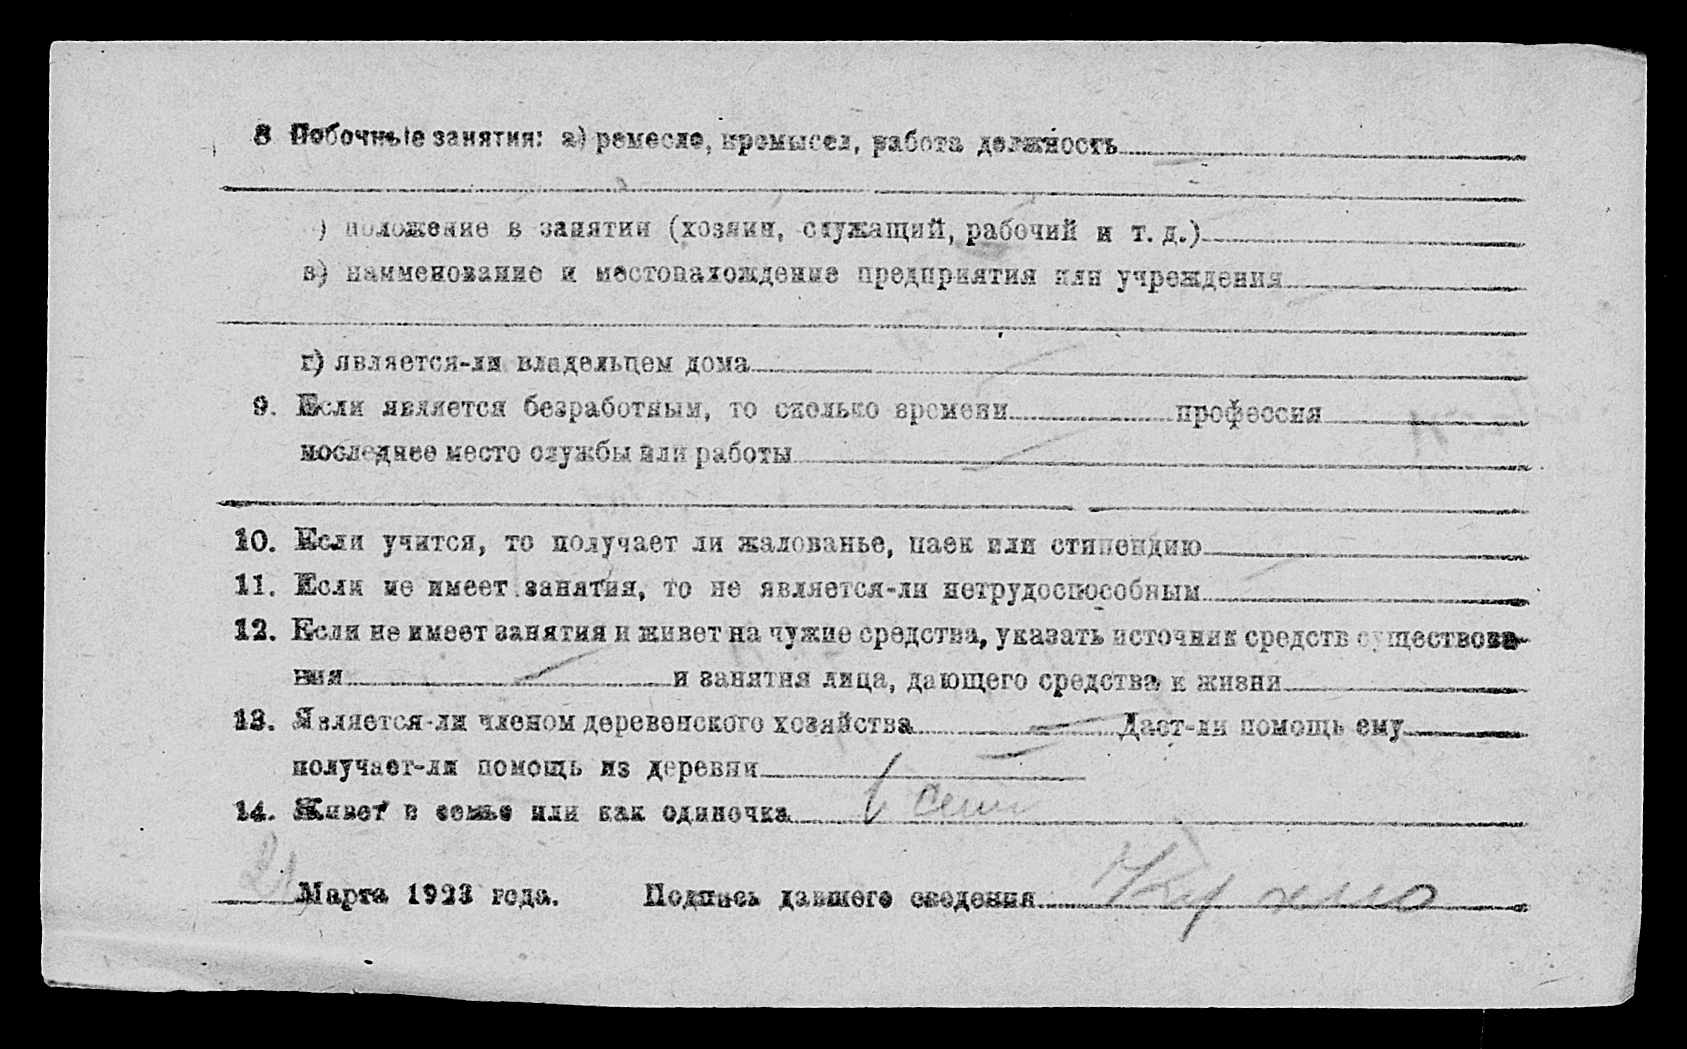 8 Побочные занятия: а) ремесло, промысел, работа должность
) положение в занятии (хозяин, служащий, рабочий и т. д.)
в) наименование и местонахождение предприятия или учреждения
г) является-ли владельцем дома
9. Если является безработным, то сколько времени профессия
последнее место службы или работы
10. Если учится, то получает ли жалованье, паек или стипендию
11. Если не имеет занятия, то не является-ли нетрудоспособным
12. Если не имеет занятия и живет на чужие средства, указать источник средств существова-
ния — и занятия лица, дающего средства к жизни
13. Является-ли членом деревенского хозяйства — Дает-ли помощь ему
получает-ли помощь из деревни —
14. Живет в семье или как одиночка в семи
21 Марта 1923 года. Подпись давшего сведения